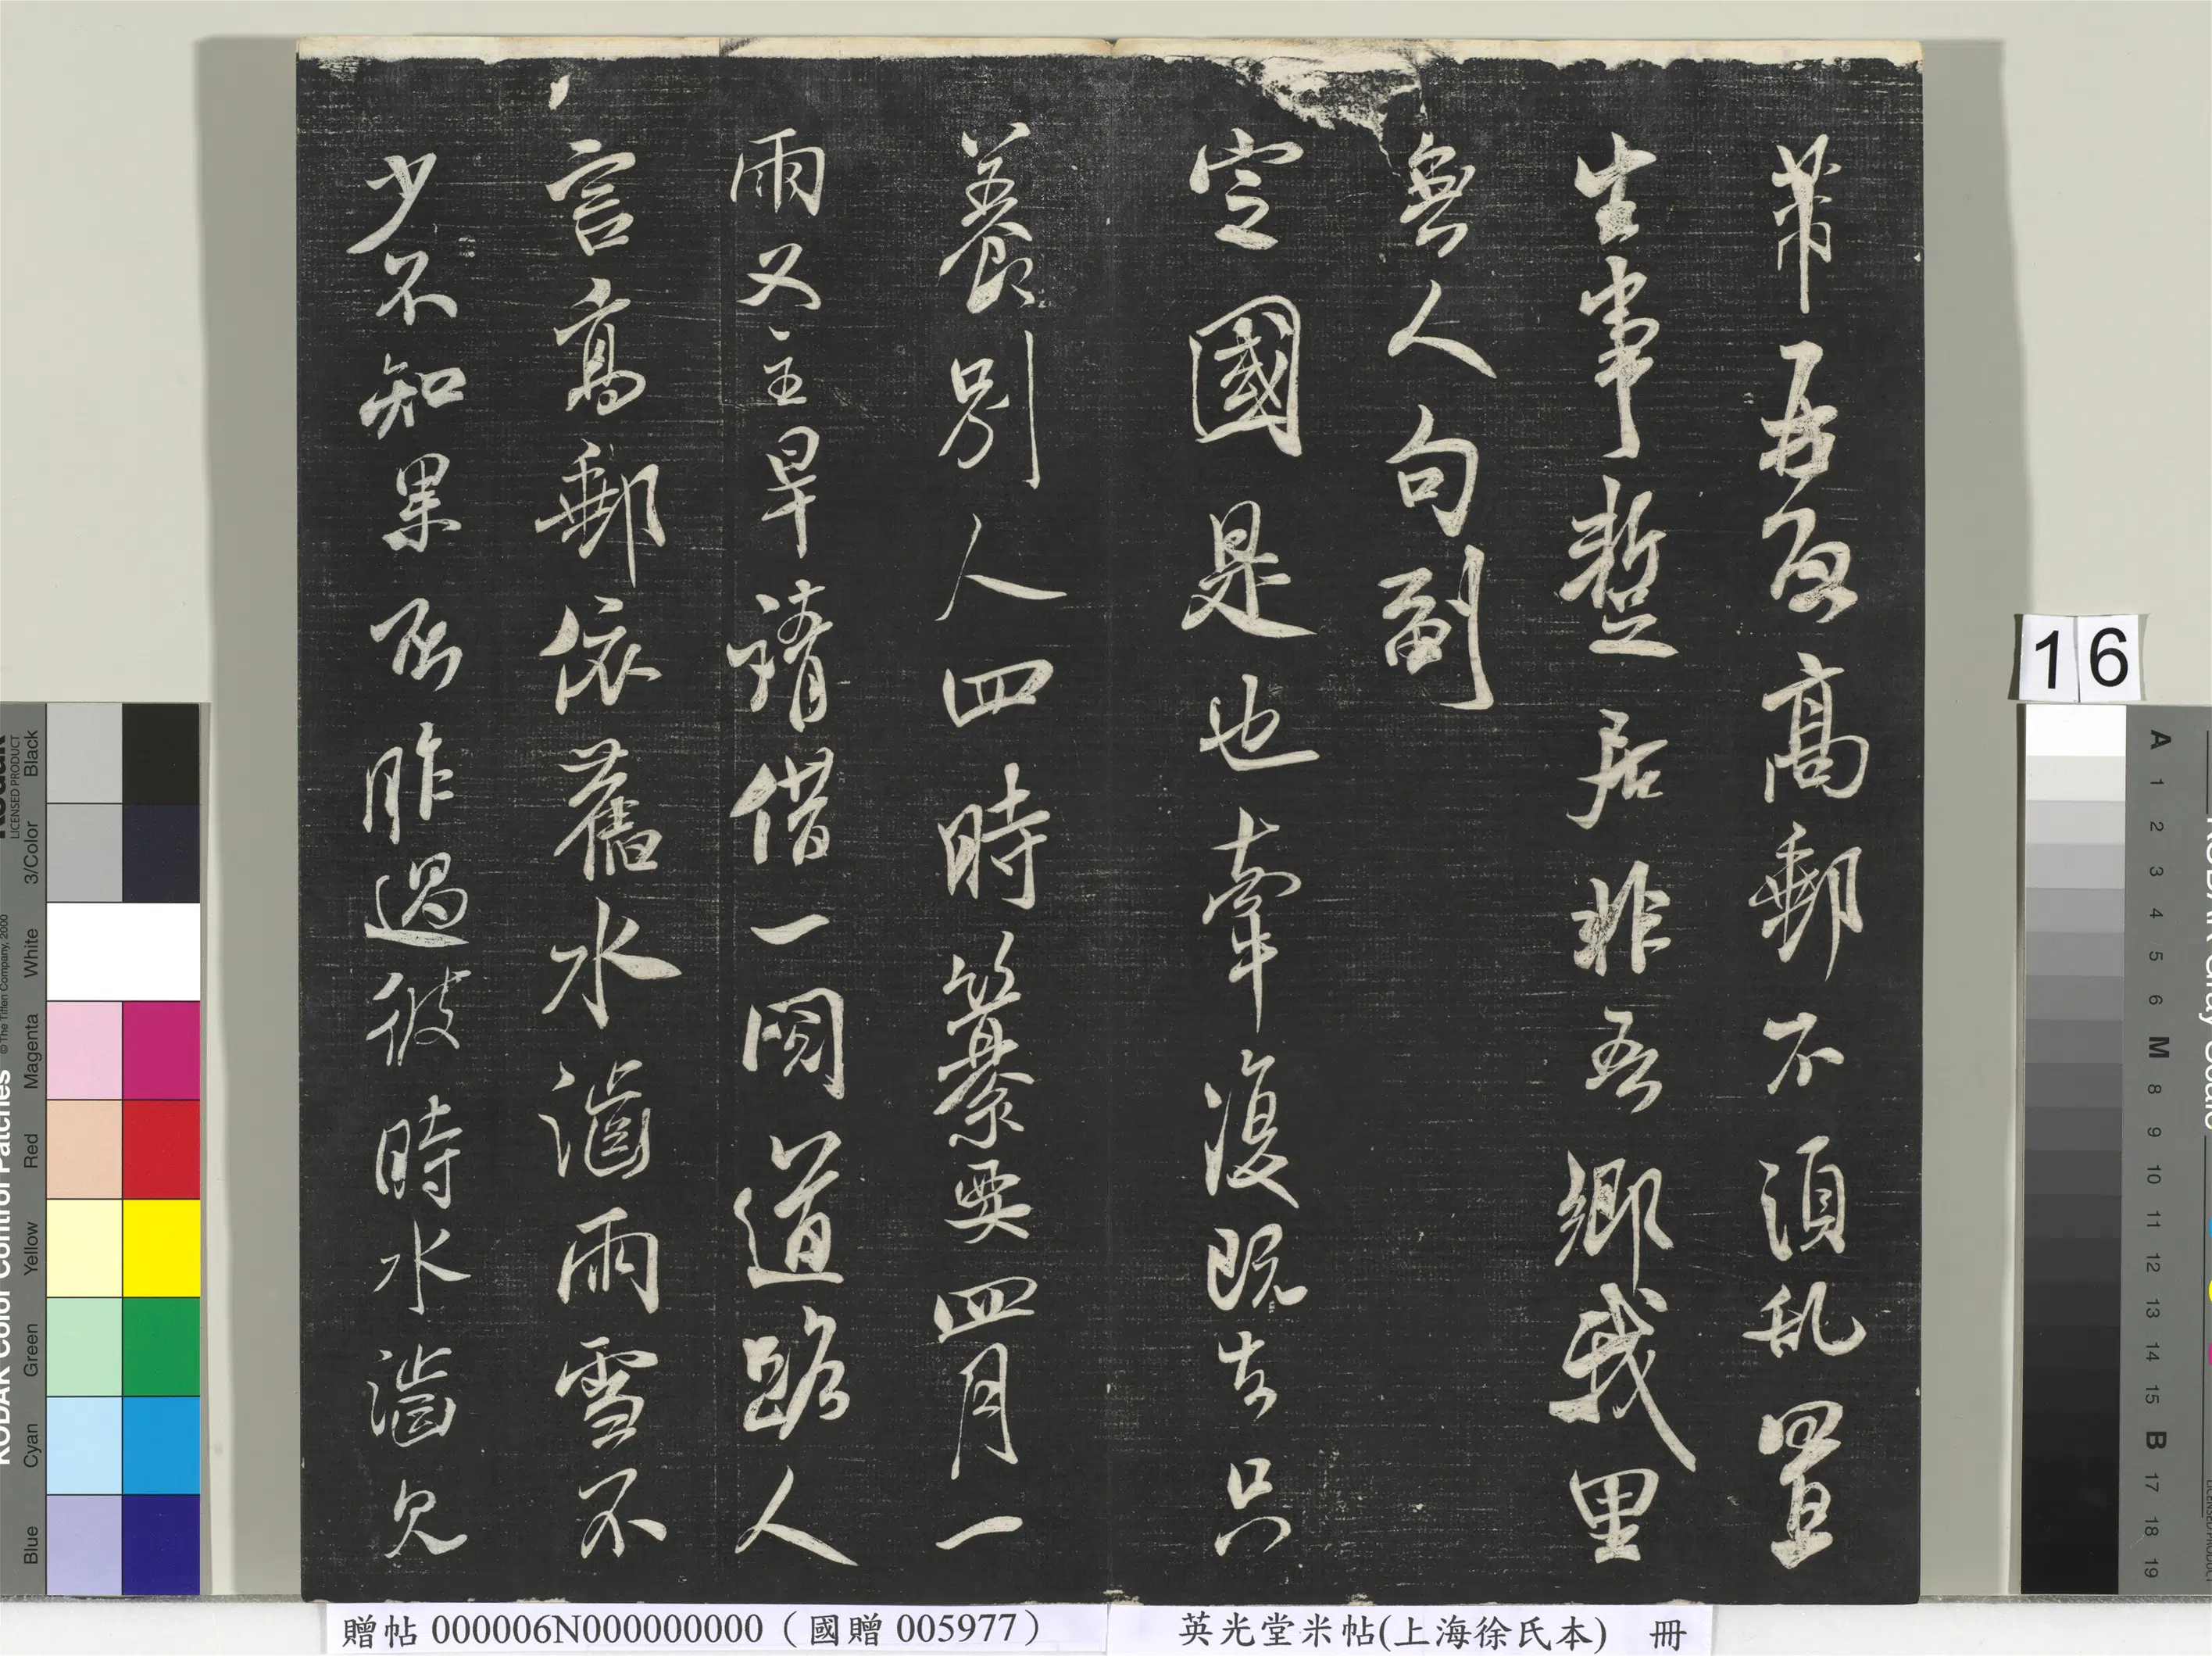 芾再啓高郵不須乱置
生事蹔居非吾鄉我里
無人句副
定國是也牽復既去只
養別人四時纂要四月一
雨又主旱請借一閱道路人
言高郵依舊水澁雨雪不
少不知果否昨過彼時水澁
16
贈帖 000006N000000000（國贈 005977）
英光堂米帖(上海徐氏本) 冊
KODAK Color Control Patches
LICENSED PRODUCT
© The Tiffen Company, 2000
Blue Cyan Green Yellow Red Magenta White 3/Color Black
A 1 2 3 4 5 6 M 8 9 10 11 12 13 14 15 B 17 18 19